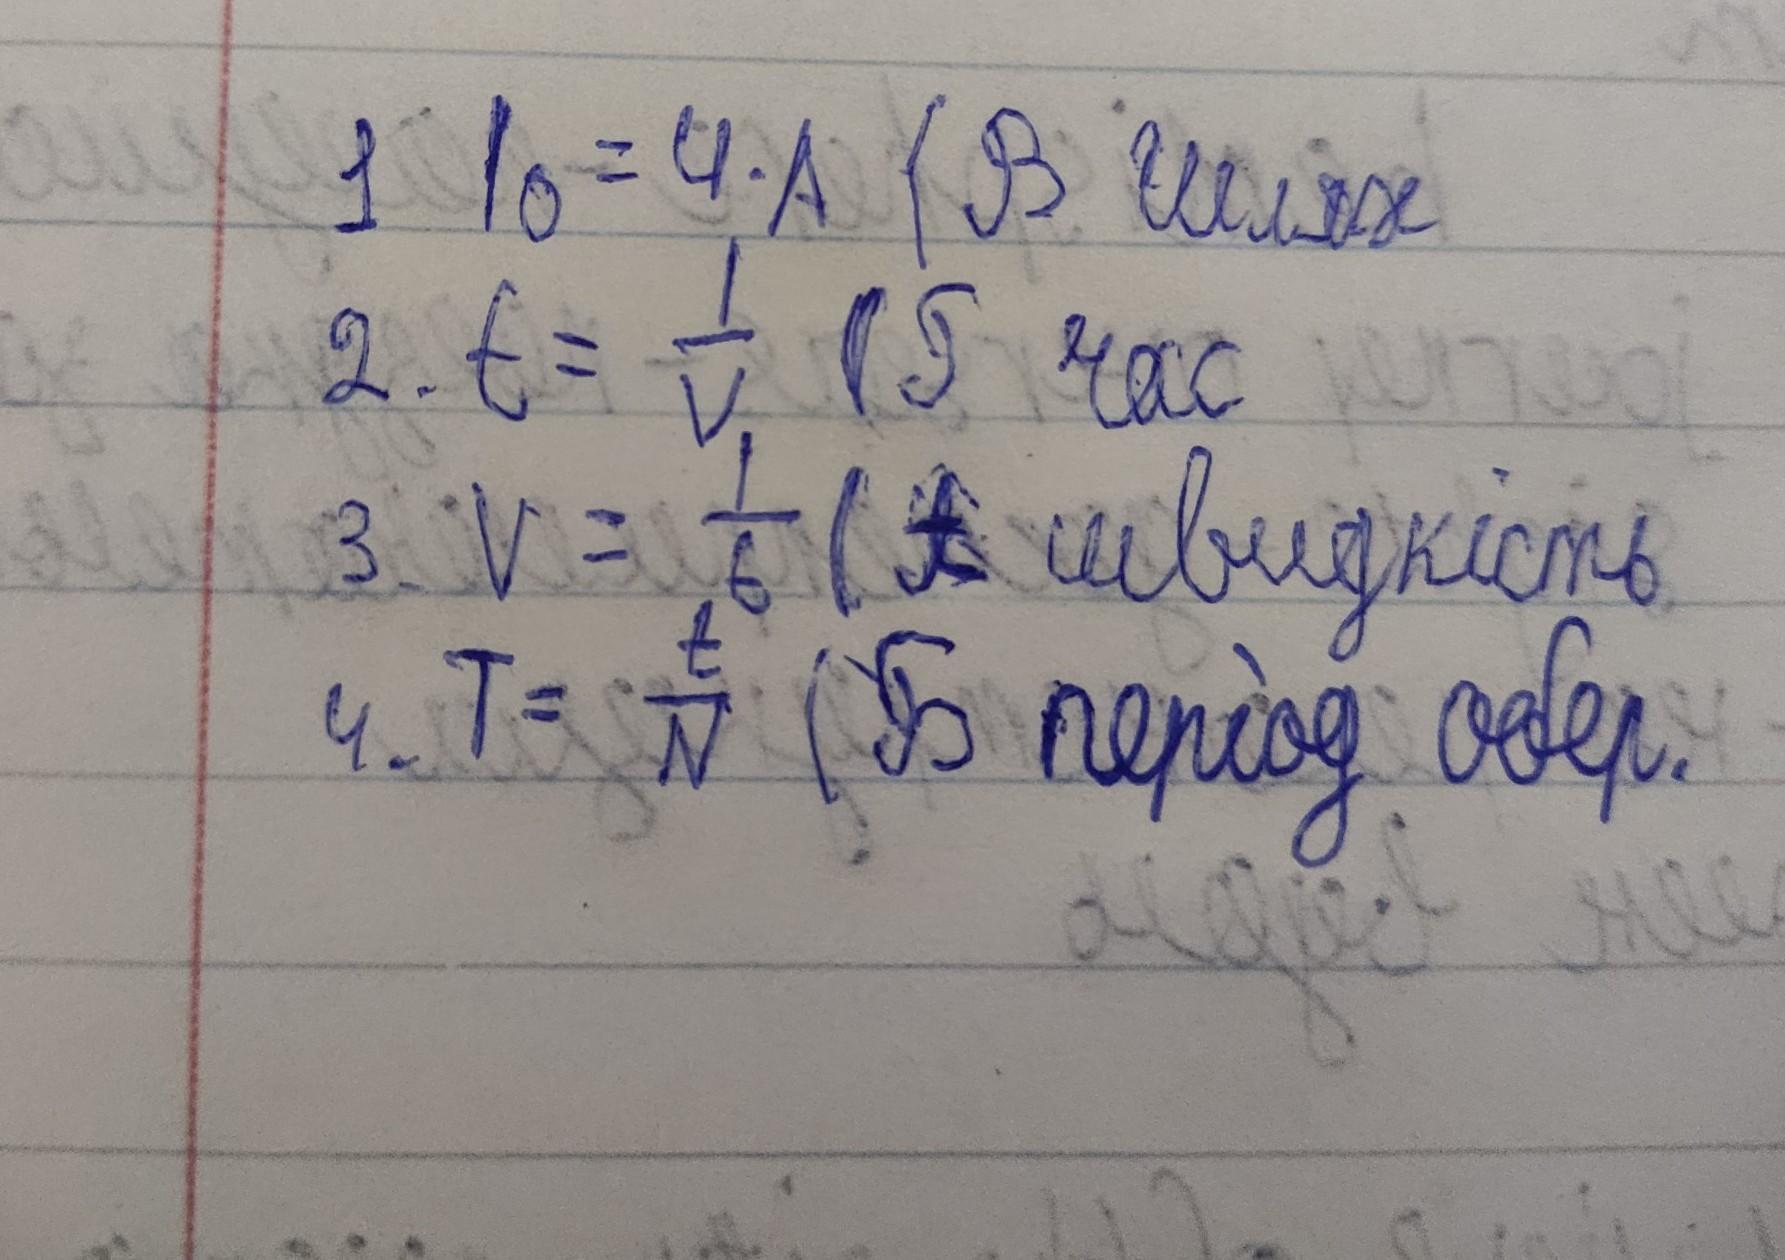 1 l₀ = 4·A ( В шлях
2. t = l/V ( Г час
3. V = l/t ( А швидкість
4. T = t/N ( Б період обер.